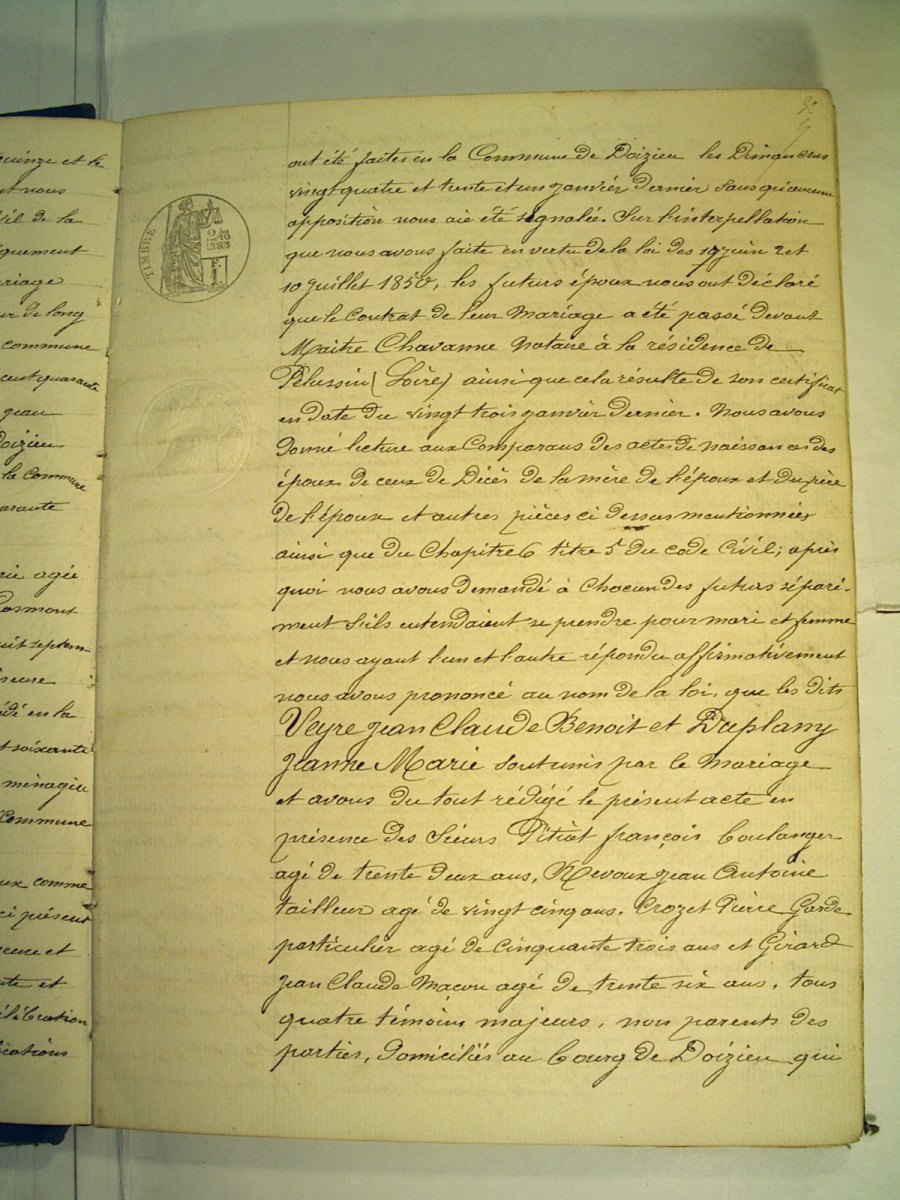 quinze et le
nous
vil de la
riage
de long
commune
cent quarante
jean
Doizieu
la commune
arante
rie agée
Cosmont
uit septem-
dé en la
t soixante
ménagère
Commune
ux comme
ci présent
et
et
célébration
cations
TIMBRE
2/10
EN SUS
ont été faites en la Commune de Doizieu les Dimanches
vingt quatre et trente et un janvier dernier sans qu'aucune
apposition nous aie été segnalée. Sur l'interpellation
que nous avons faite en vertu de la loi des 17 juin et
10 juillet 1850, les futurs époux nous ont déclaré
que le Contrat de leur Mariage a été passé devant
Maitre Chavanne Notaire à la résidence de
Pelussin (Loire) ainsi que cela résulte de son certificat
en date du vingt trois janvier dernier. Nous avons
donné lecture aux Comparans des actes de naissances des
époux de ceux de Décès de la mère de l'époux et du père
de l'épouse et autres pièces ci dessus mentionnées
ainsi que du Chapitre 6 titre 5 du code Civil; après
quoi nous avons demandé à Chacun des futurs séparé-
ment s'ils entendaient se prendre pour mari et femme
et nous ayant l'un et l'autre répondu affirmativement
nous avons prononcé au nom de la loi, que les dits
Veyre Jean Claude Benoit et Duplany
Jeanne Marie sont unis par le Mariage
et avons du tout rédigé le présent acte en
présence des Sieurs Pitiot françois boulanger
agé de trente deux ans, Revoux Jean Antoine
tailleur agé de vingt cinq ans, Crozet Pierre Garde
particulier agé de Cinquante trois ans et Girard
Jean Claude Maçon agé de trente six ans, tous
quatre témoins majeurs, non parents des
parties, domiciliés au bourg de Doizieu qui